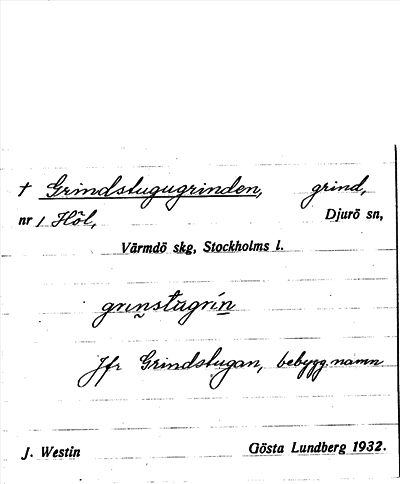 † Grindstugugrinden, grind,
nr 1 Höl, Djurö sn,
Värmdö skg, Stockholms l.
grinstagrín
Jfr Grindstugan, bebygg.namn
J. Westin Gösta Lundberg 1932.